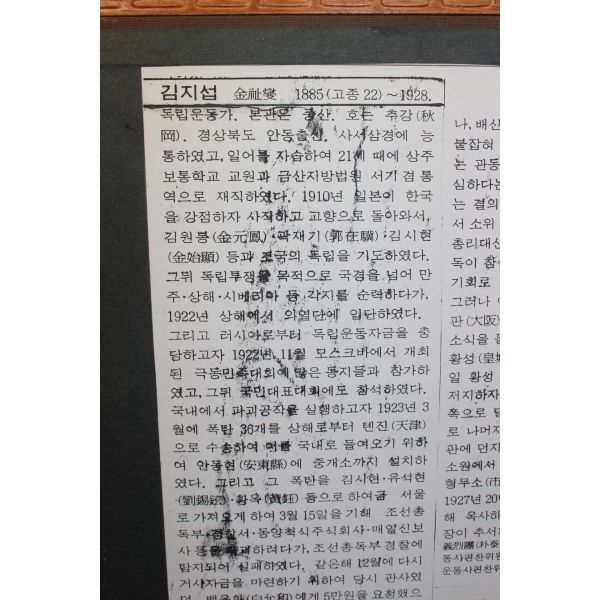 김지섭 金祉燮 1885(고종 22)~1928.
독립운동가. 본관은 풍산. 호는 추강(秋
岡). 경상북도 안동출신. 사서삼경에 능
통하였고, 일어를 자습하여 21세 때에 상주
보통학교 교원과 금산지방법원 서기 겸 통
역으로 재직하였다. 1910년 일본이 한국
을 강점하자 사직하고 고향으로 돌아와서,
김원봉(金元鳳)·곽재기(郭在驥)·김시현
(金始顯) 등과 조국의 독립을 기도하였다.
그뒤 독립투쟁을 목적으로 국경을 넘어 만
주·상해·시베리아 등 각지를 순력하다가,
1922년 상해에서 의열단에 입단하였다.
그리고 러시아로부터 독립운동자금을 충
당하고자 1922년 11월 모스크바에서 개최
된 극동민족대회에 많은 동지들과 참가하
였고, 그뒤 국민대표대회에도 참석하였다.
국내에서 파괴공작을 실행하고자 1923년 3
월에 폭탄 36개를 상해로부터 텐진(天津)
으로 수송하여 이를 국내로 들여오기 위하
여 안동현(安東縣)에 중개소까지 설치하
였다. 그리고 그 폭탄을 김시현·유석현
(劉錫鉉)·황옥(黃鈺) 등으로 하여금 서울
로 가져오게 하여 3월 15일을 기해 조선총
독부·경찰서·동양척식주식회사·매일신보
사 등을 파괴하려다가, 조선총독부 경찰에
탐지되어 실패하였다. 같은해 12월에 다시
거사자금을 마련하기 위하여 당시 판사였
던 백윤화(白允和)에게 5만원을 요청했으
나, 배신
붙잡혀
는 관동
심하다는
는 결의
서 소위
총리대신
독이 참석
기회로
그러나
판(大阪)
소식을 듣
황성(皇城
일 황성
저지하자
쪽으로 달
로 나머지
판에 던지
소원에서
형무소(市
1927년 20년
해 옥사하
장이 추서
義烈團(朴泰
동사편찬위원
운동사편찬